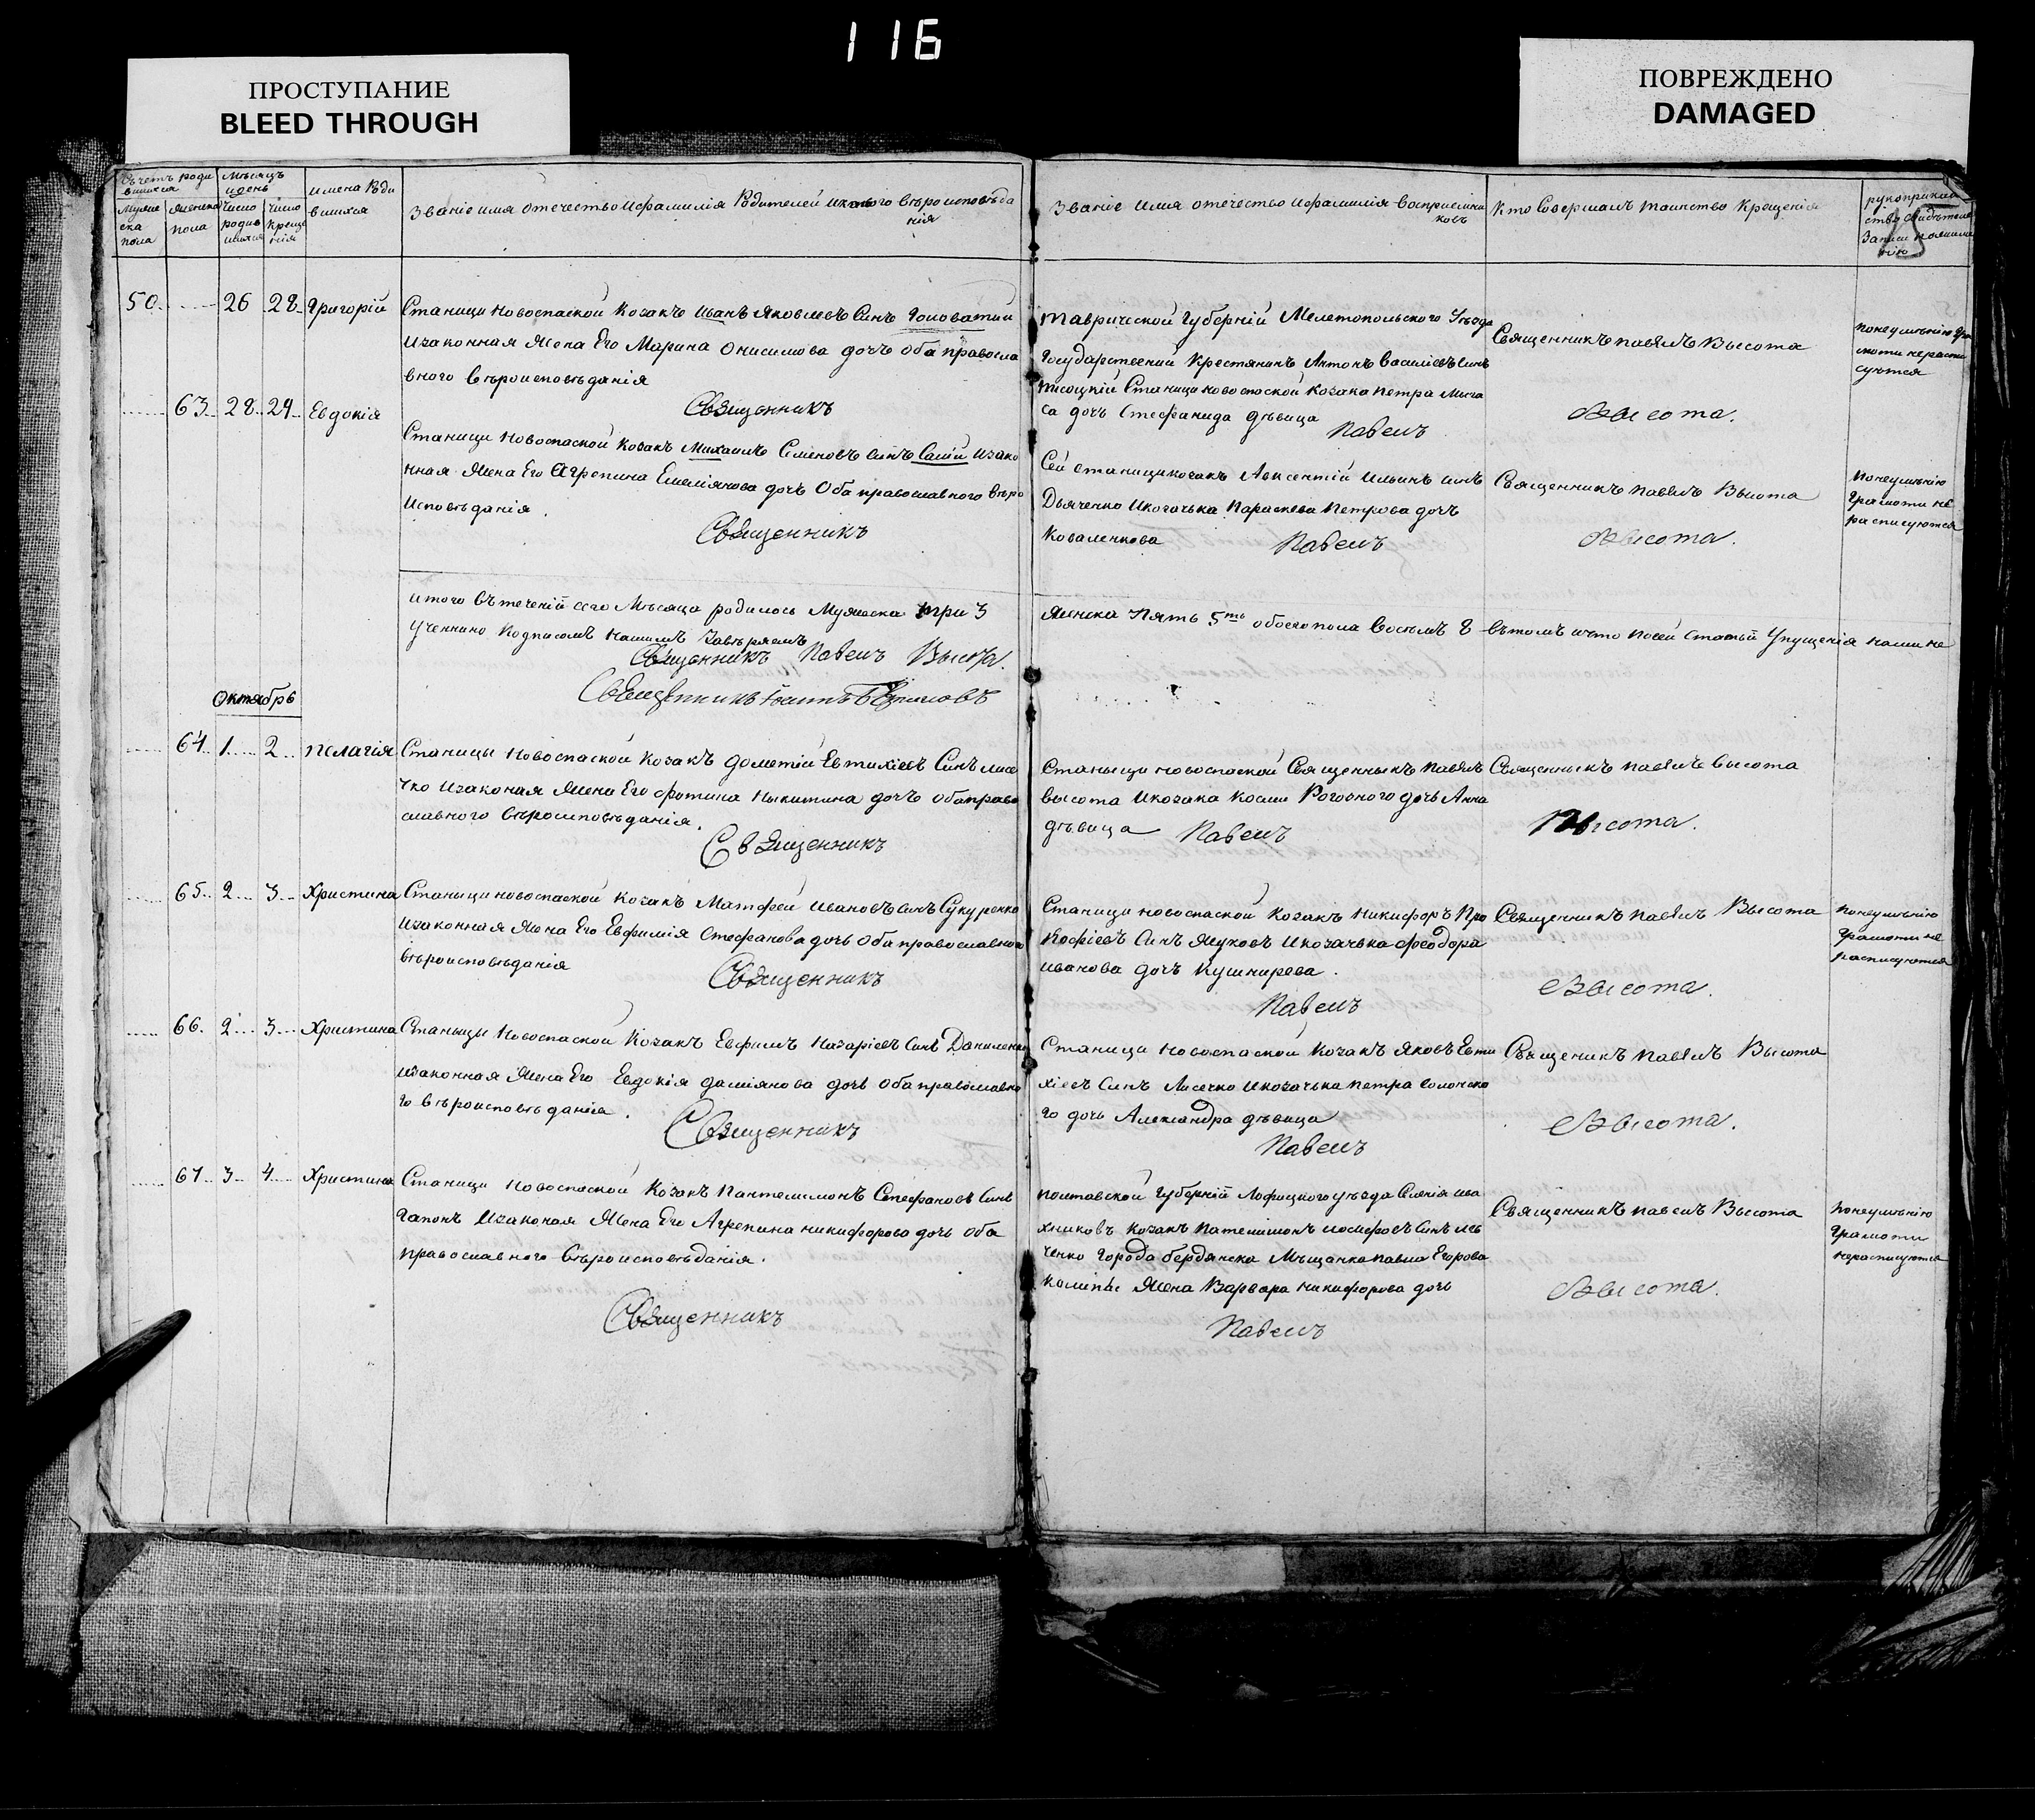 116
ПРОСТУПАНИЕ
BLEED THROUGH
ПОВРЕЖДЕНО
DAMAGED
Счетъ роди
вшихся
Мѣсяцъ
и день
имена Роди
вшихся
Муже
ска
пола
Женска
пола
Число
родив
шихся
Число
Креще
нія
Званіе имя отечество и фамилія Родителей и какого вѣроисповѣда
нія
Званіе имя отечество и фамилія восприемни
ковъ
Кто Совершалъ таинство Крещенія
рукоприклад
ство свидѣтелей
Записи
50. 26 28 Григорій
Станици Новоспаской Козакъ Иванъ Яковлевъ Синъ Головатий
изаконная Жена Его Марина Онисимова дочъ оба правосла
вного вѣроисповѣданія
Священникъ
Таврической Губерній Мелетопольского Уѣзда
Государствений Крестянинъ Антонъ Василіевъ Синъ
Станици новоспаской Козака Петра
са дочъ Стефанида дѣвица
Павелъ
Священникъ Павелъ Высота
Высота.
понеумѣнію Гра
моти нераспи
суются
63. 28. 29. Евдокія
Станици Новоспаской Козакъ Михаилъ Семеновъ Синъ Салій изако
нная Жена Его Агрепина Емеліянова дочъ Оба православного вѣро
исповѣданія.
Священникъ
Сей станици козакъ Авксентій Ильинъ синъ
Дьяченко Икозачька Параскева Петрова дочъ
Коваленкова
Павелъ
Священникъ Павелъ Высота
Высота.
Понеумѣнію
Грамоти не
расписуются
итого въ теченій сего Мѣсяца родилось Мужеска три 3
Женска Пять 5ть обоегопола Восѣмъ 8 вътомъ что посей Статьй Упущенія нами не
Учеинно Подписомъ Нашимъ Завѣряемъ
Священникъ Павелъ Высота.
Священникъ
Октябрь
64. 1. 2. Пелагія
Станицы Новоспаской Козакъ Дометій Евтихіевъ Синъ Лисе
чко Изаконая Жена Его Фотина Ныкитина дочъ оба право
славного вѣроисповѣданія.
Священникъ
Станыци Новоспаской Священныкъ Павелъ
Высота Икозака Косми Рогозного дочъ Анна
дѣвица
Павелъ
Священныкъ Павелъ Высота
Высота.
65. 2. 3. Христина
Станыци новоспаской Козакъ Матфей Ивановъ Синъ Сукуренко
Изаконная Жена Его Евфимія Стефанова дочъ Оба православного
вѣроисповѣданія
Священникъ
Станици новоспаской Козакъ Никифоръ Про
кофіевъ Синъ Жуковъ Икозачька Феодора
иванова дочъ Кушнирева.
Павелъ
Священникъ Павелъ Высота
Высота.
Понеумѣнію
Грамоти не
расписуются
66. 2. 3. Христина
Станыцы Новоспаской Козакъ Евфимъ Назаріевъ Синъ Даниленко
изаконная Жена Его Евдокія Даміянова дочъ оба православно
го вѣроисповѣданія.
Священникъ
Станици Новоспаской Козакъ Яковъ Евти
хіевъ Синъ Лисечко Икозачька Петра Солонско
го дочъ Александра дѣвица
Павелъ
Священикъ Павелъ Высота
Высота.
67. 3. 4. Христина
Станици Новоспаской Козакъ Пантелимонъ Стефановъ Синъ
Гапонъ Изаконая Жена Его Агрепина Никифорова дочъ оба
православного вѣроисповѣданія.
Священникъ
Полтавской Губерній Лофицкого уѣзда Селенія Ива
хниковъ Козакъ Пателимонъ Иосифовъ Синъ Лев
ченко Города бердянска Мѣщанка Павла Егорова
Жена Варвара Никифорова дочъ
Павелъ
Священникъ Павелъ Высота
Высота.
Понеумѣнію
Грамоти
нерасписуются